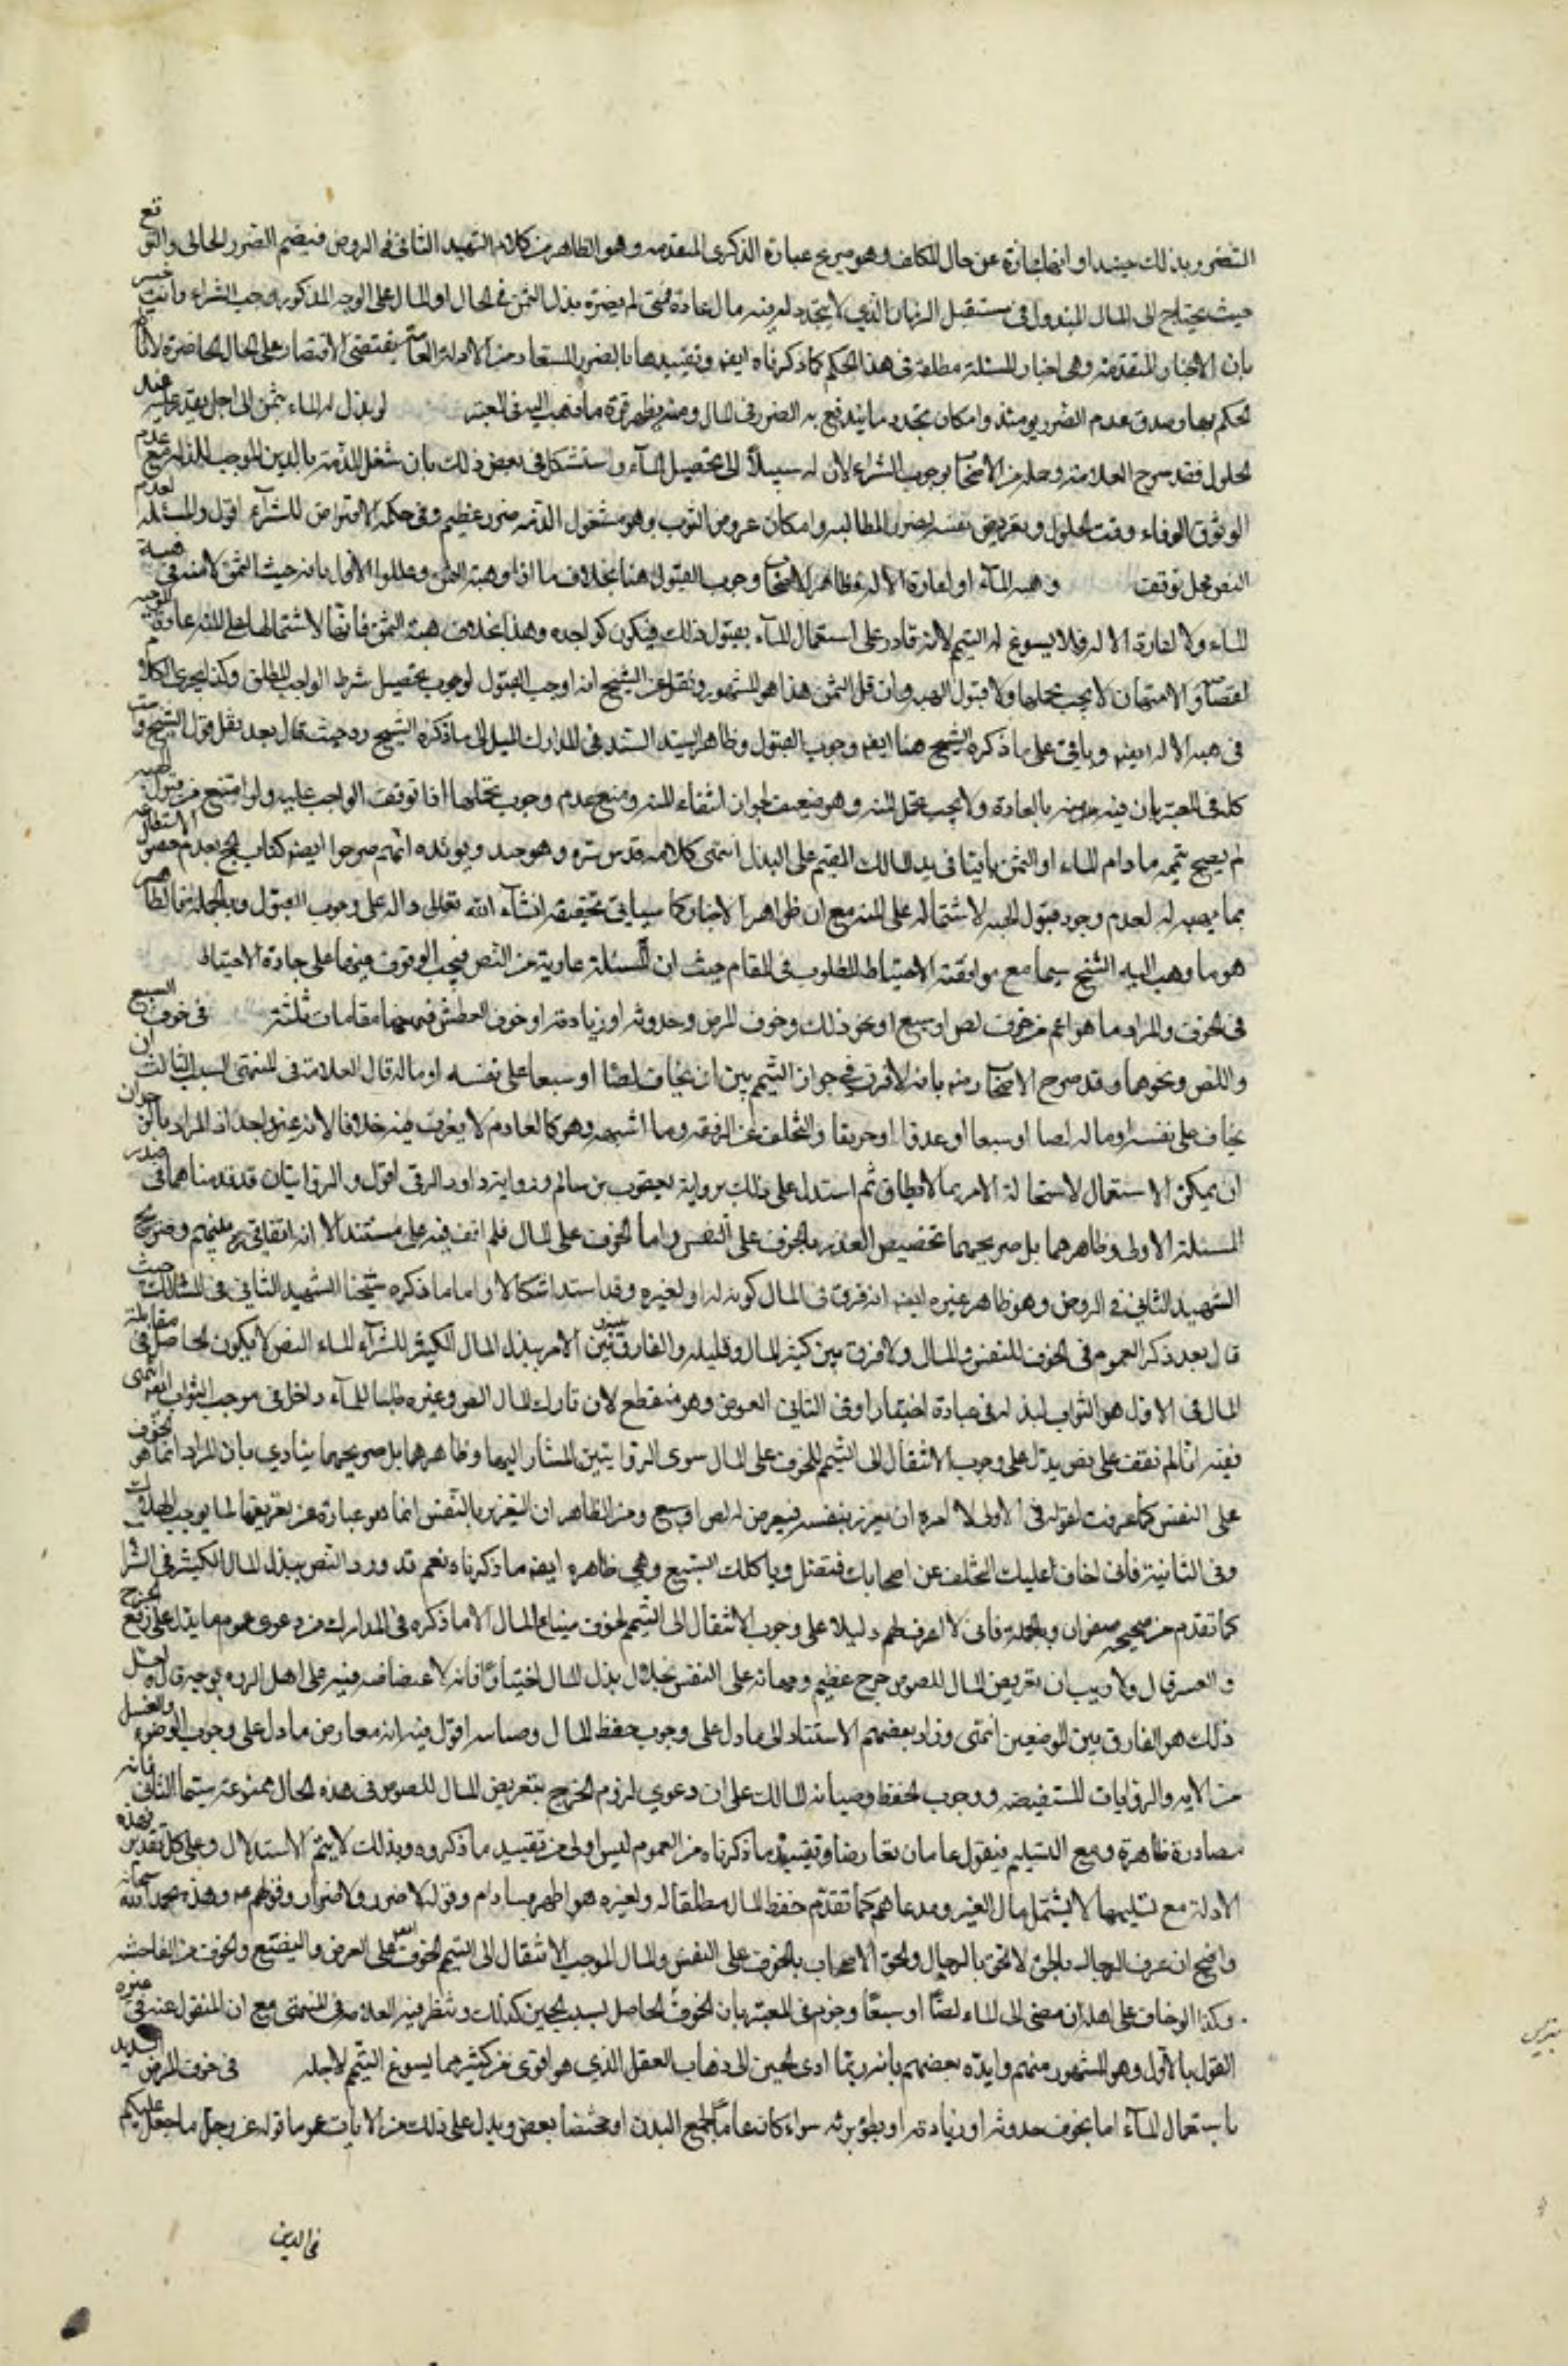 التضرر بذلك حينئذ او انتهائه عن حال المكلف وهو صريح عبارة الذكرى المتقدمه وهو الظاهر من كلام الشهيد الثاني في الروض فيضم الضرر الحالى والمتوقع
حيث يحتاج الى المال المبذول في مستقبل الزمان الذي لا يتجدد له فيه مال عادة فمتى لم يضره بذل الثمن في الحال او المال على الوجه المذكور وجب الشراء وانت خبير
بان الاخبار المتقدمة وهى اخبار المسئلة مطلقة فى هذا الحكم كما ذكرناه ايضه وتقييدها بالضرر المستفاد من الادلة العامة يقتضى الاقتصار على الحال الحاضرة لانا
لحكم بها وصدق عدم الضرر يومئذ وامكان تجدد ما يندفع به الضرر فى المال ومنه يظهر قوة ما ذهب اليه فى المعتبر لو بذل له الماء بثمن الى اجل يقدر عليه عند
الحلول فقد صرح العلامة وجمله من الاصحاب بوجوب الشراء لان له سبيلا الى تحصيل الماء واستشكل في بعض ذلك بان شغل الذمة بالدين الموجب للمذلة مع عدم
الوثوق بالوفاء وقت الحلول وتعريض نفسه لضرر المطالبه وامكان عروض الموت وهو مشغول الذمه ضرر عظيم وفى حكمه الاقتراض للشراء اقول والمسئلة لعدم
النص محل توقف وهبه الماء او اعارة الاله ظاهر الاصحاب وجوب القبول هنا بخلاف ما اذا وهبه الثمن وعللوا الاول بانه حيث الثمن لا منه فى هبة
الماء ولا اعارة الاله فلا يسوغ له التيمم لانه قادر على استعمال الماء بقبول ذلك فيكون كواجده وهذا بخلاف هبة الثمن فانها لاشتمالها على المنه عادة الموجبه
لغضاضة والامتهان لا يجب تحملها ولا قبول الهبه وان قل الثمن هذا هو المشهور ونقل عن الشيخ انه اوجب القبول لوجوب تحصيل شرط الواجب المطلق وكذا يجرى الكلام
فى هبه الاله ايضه وياتى على ما ذكره الشيخ هنا ايضه وجوب القبول وظاهر السيد السند فى المدارك الميل الى ما ذكره الشيخ ره حيث قال بعد نقل قول الشيخ
كله فى المعتبر بان فيه منه بالعادة ولا يجب تحمل المنه وهو ضعيف لجواز انتفاء المنه ومنع عدم وجوب تحملها اذا توقف الواجب عليه ولو امتنع من قبول الهبه
لم يصح تيممه ما دام الماء او الثمن باقيا فى يد المالك المقيم على البذل انتهى كلامه قدس سره وهو جيد ويؤيده انهم صرحوا ايضه كتاب الحج بعدم حصول الاستطاعه
بما يوهب له لعدم وجود قبول الهبه لاشتماله على المنه مع ان ظواهر الاخبار كما سياتى تحقيقه انشاء الله تعالى داله على وجوب القبول وبالجمله فالظاهر
هو ما ذهب اليه الشيخ سيما مع موافقته الاحتياط المطلوب فى المقام حيث ان المسئلة عارية عن النص فيجب الوقوف فيها على جادة الاحتياط
فى الخوف والمراد ما هو اعم من خوف لص او سبع او نحو ذلك وخوف المرض وحدوثه او زيادته او خوف العطش فهيهنا مقامات ثلثة فى خوف السبع
واللص ونحوهما وقد صرح الاصحاب رضه بانه لا فرق فى جواز التيمم بين ان يخاف لصا او سبعا على نفسه او ماله قال العلامة فى المنتهى السبب الثالث ان
يخاف على نفسه او ماله لصا او سبعا او عدوا او حريقا والتخلف عن الرفقه وما اشبهه وهو كالعادم لا يعرف فيه خلافا لانه غير واجد اذ المراد بالوجدان
ان يمكن الاستعمال لاستحالة الامر بما لا يطاق ثم استدل على ذلك برواية يعقوب بن سالم ورواية داود الرقى اقول والروايتان قد قدمناهما فى صدر
المسئلة الاولى وظاهرهما بل صريحهما تخصيص العذر بالخوف على النفس واما الخوف على المال فلم اقف فيه على مستند الا انه اتفاقى بينهم وصريح
الشهيد الثانى فى الروض وهو ظاهر غيره ايضه انه لا فرق فى المال كونه له او لغيره وقد استد اشكالا واما ما ذكره شيخنا الشهيد الثاني فى المسالك حيث
قال بعد ذكر العموم فى الخوف للنفس والمال ولا فرق بين كثير المال وقليله والفارق بين الامر ببذل المال الكثير لشراء الماء النص لا يكون الحاصل فى مقابلة
المال فى الاول هو الثواب لبذله فى عبادة اختيارا وفى الثانى العوض وهو منقطع لان تارك المال للص وغيره طلبا للماء داخل فى موجب الثواب ايضه انتهى
ففيه انا لم نقف على نص يدل على وجوب الانتقال الى التيمم للخوف على المال سوى الروايتين المشار اليهما وظاهرهما بل صريحهما ينادى بان المراد انما هو الخوف
على النفس كما عرفت لقوله فى الاولى لا امره ان يغرر بنفسه فيعرض له لص او سبع ومن الظاهر ان التغرير بالنفس انما هو عبارة عن تعريضها لما يوجب الهلاك
وفى الثانية فانى اخاف عليك التخلف عن اصحابك فتضل وياكلك السبع وهى ظاهرة ايضه ما ذكرناه نعم قد ورد النص ببذل المال الكثير فى الشراء
كما تقدم من صحيحه صفوان وبالجمله فانى لا اعرف لهم دليلا على وجوب الانتقال الى التيمم لخوف ضياع المال الا ما ذكره فى المدارك من دعوى عموم ما يدل على رفع الحرج
والعسر قال ولا ريب ان تعريض المال للصوص حرج عظيم ومهانة على النفس بخلاف بذل المال اختيارا فانه لا غضاضه فيه على اهل المروه بوجه قال ولعل
ذلك هو الفارق بين الموضعين انتهى وزاد بعضهم الاستناد الى ما دل على وجوب حفظ المال وصيانته اقول فيه انه معارض ما دل على وجوب الوضوء والغسل
من الايه والروايات المستفيضه ووجوب الحفظ وصيانه المال على ان دعوى لزوم الحرج بتعريض المال للصوص فى هذه الحال ممنوعة سيما الثانى فانه
مصادرة ظاهرة ومع التسليم فنقول عامان تعارضا وتقييد ما ذكرناه من العموم ليس اولى من تقييد ما ذكروه وبذلك لا يتم الاستدلال وعلى كل تقدير فهذه
الادلة مع تسليمها لا تشمل مال الغير ومدعاهم كما تقدم حفظ المال مطلقا له ولغيره
واضح الحق الاصحاب بالخوف على النفس والمال الموجب الانتقال الى التيمم الخوف على العرض والبضع والخوف من الفاحشه
وكذا لو خاف على اهله ان مضى الى الماء لصا او سبعا وجزم فى المعتبر بان الخوف الحاصل بسبب الجبن كذلك وتنظر فيه العلامه فى المنتهى مع ان المنقول عنه فى غيره
القول بالاول وهو المشهور منهم وايده بعضهم بانه ربما ادى الجبن الى ذهاب العقل الذي هو اقوى من كثير مما يسوغ التيمم لاجله فى خوف المرض الشديد
باستعمال الماء اما بخوف حدوثه او زيادته او بطؤ برئه سواء كان عاما لجميع البدن او مختصا ببعض ويدل على ذلك من الايات عموما قوله عز وجل ما جعل عليكم
فى الدين